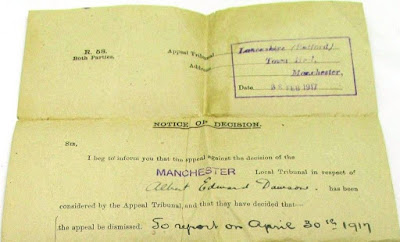 R. 58.
Both Parties.
Appeal Tribunal
Address
Lancashire (Salford)
Town Hall,
Manchester,
Date FEB 1917
NOTICE OF DECISION.
Sir,
I beg to inform you that the appeal against the decision of the
MANCHESTER Local Tribunal in respect of
Albert Edward Dawson. has been
considered by the Appeal Tribunal, and that they have decided that—
the appeal be dismissed. To report on April 30th 1917